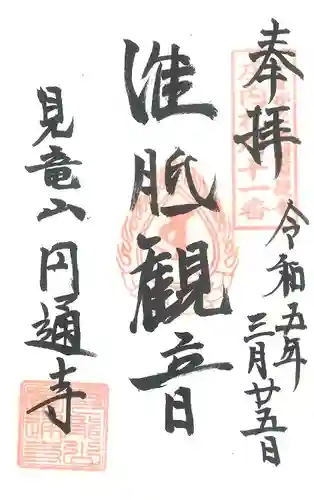 奉拝
令和五年
三月廿五日
十一番
准胝観音
見竜山円通寺